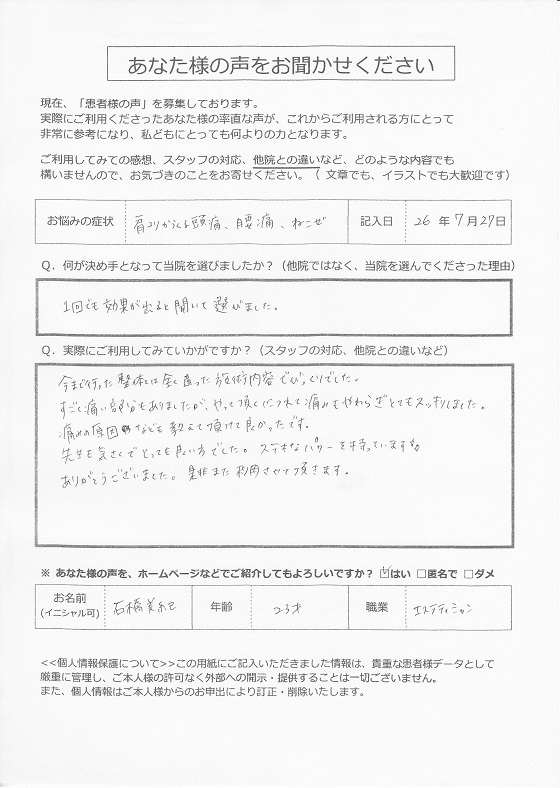 あなた様の声をお聞かせください
現在、「患者様の声」を募集しております。
実際にご利用くださったあなた様の率直な声が、これからご利用される方にとって
非常に参考になり、私どもにとっても何よりの力となります。
ご利用してみての感想、スタッフの対応、他院との違いなど、どのような内容でも
構いませんので、お気づきのことをお寄せください。（ 文章でも、イラストでも大歓迎です）
お悩みの症状 肩コリからくる頭痛、腰痛、ねこぜ 記入日 26 年 7 月 27 日
Q．何が決め手となって当院を選びましたか？（他院ではなく、当院を選んでくださった理由）
1回でも効果が出ると聞いて選びました。
Q．実際にご利用してみていかがですか？（スタッフの対応、他院との違いなど）
今まで行った整体とは全く違った施術内容でびっくりでした。
すごく痛い部分もありましたが、やって頂くにつれて痛みもやわらぎとてもスッキリしました。
痛みの原因なども教えて頂けて良かったです。
先生も気さくでとっても良い方でした。ステキなパワーを持っていますね
ありがとうございました。是非また利用させて頂きます。
※ あなた様の声を、ホームページなどでご紹介してもよろしいですか？ ☑はい □匿名で □ダメ
お名前
(イニシャル可) 石橋 年齢 23才 職業 エステティシャン
<<個人情報保護について>>この用紙にご記入いただきました情報は、貴重な患者様データとして
厳重に管理し、ご本人様の許可なく外部への開示・提供することは一切ございません。
また、個人情報はご本人様からのお申出により訂正・削除いたします。